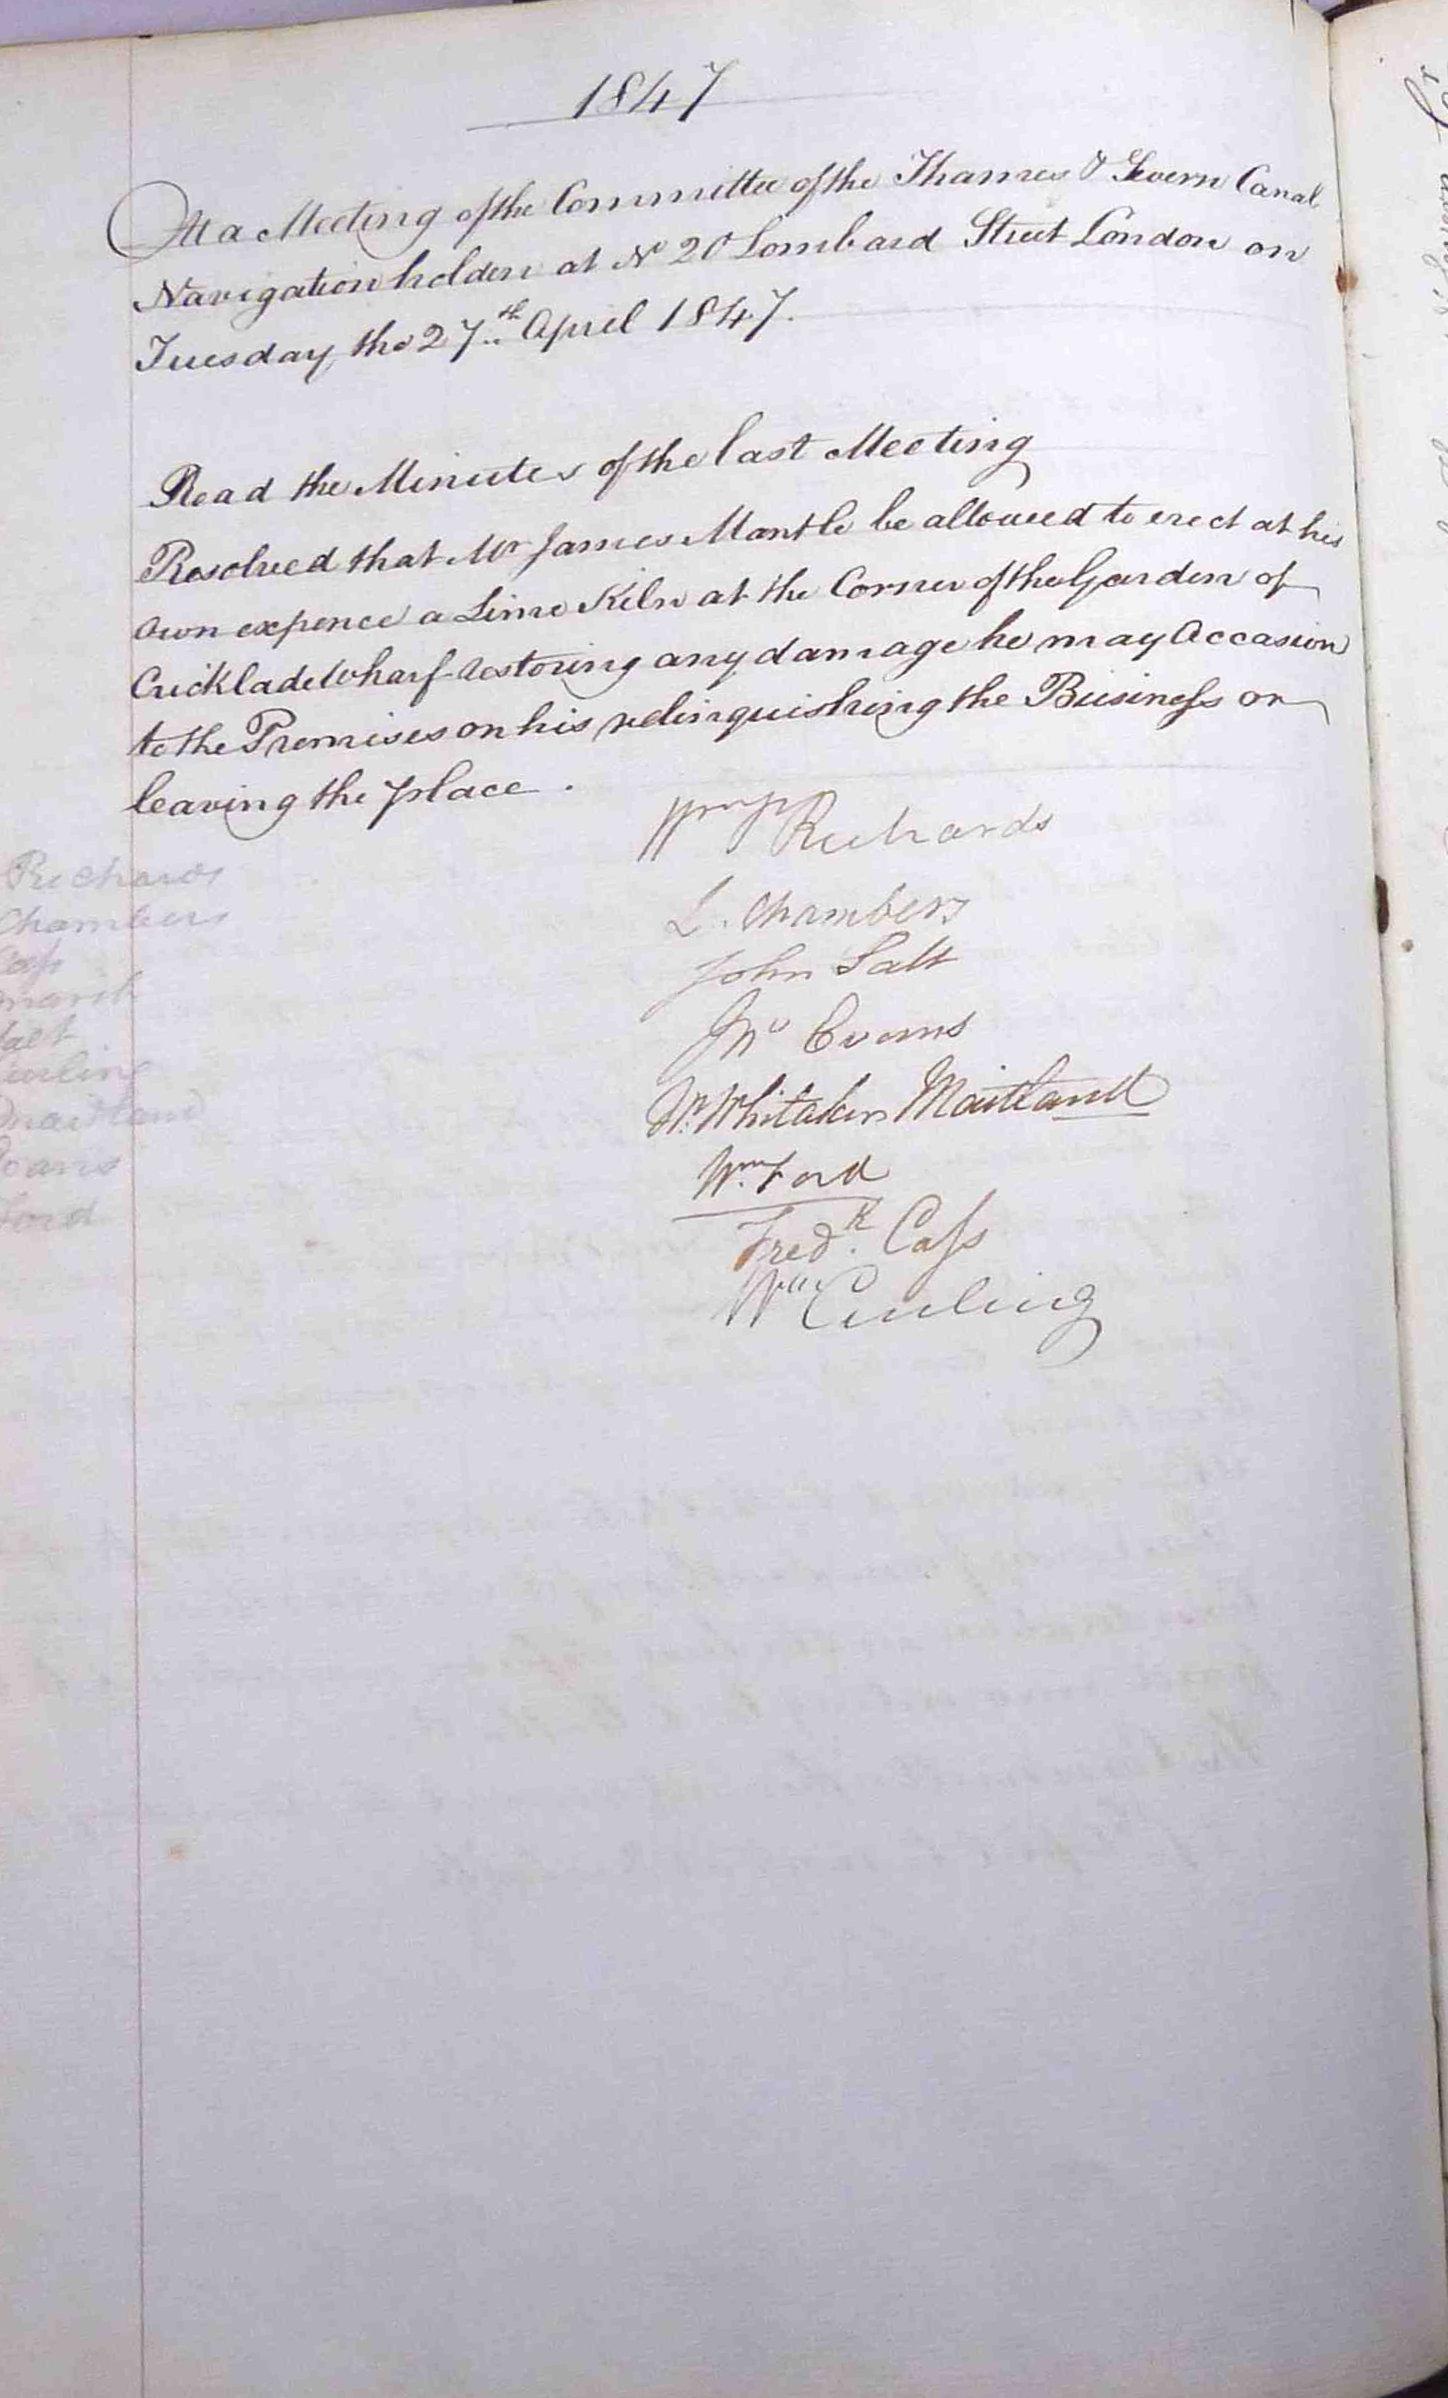 1847
At a Meeting of the Committee of the Thames & Severn Canal
Navigation holden at No 20 Lombard Street London on
Tuesday the 27th April 1847.
Read the Minutes of the last Meeting
Resolved that Mr James Mantle be allowed to erect at his
own expence a Lime Kiln at the Corner of the Garden of
Cricklade Wharf restoring any damage he may Occasion
to the Premises on his relinquishing the Business or
leaving the place.
Richards
L. Chambers
John Salt
Jno Evans
Wm Whitaker Maitland
Wm Ford
Fredk Cass
Wm Curling
Richards
Chambers
Cass
Salt
Curling
Maitland
Evans
Ford